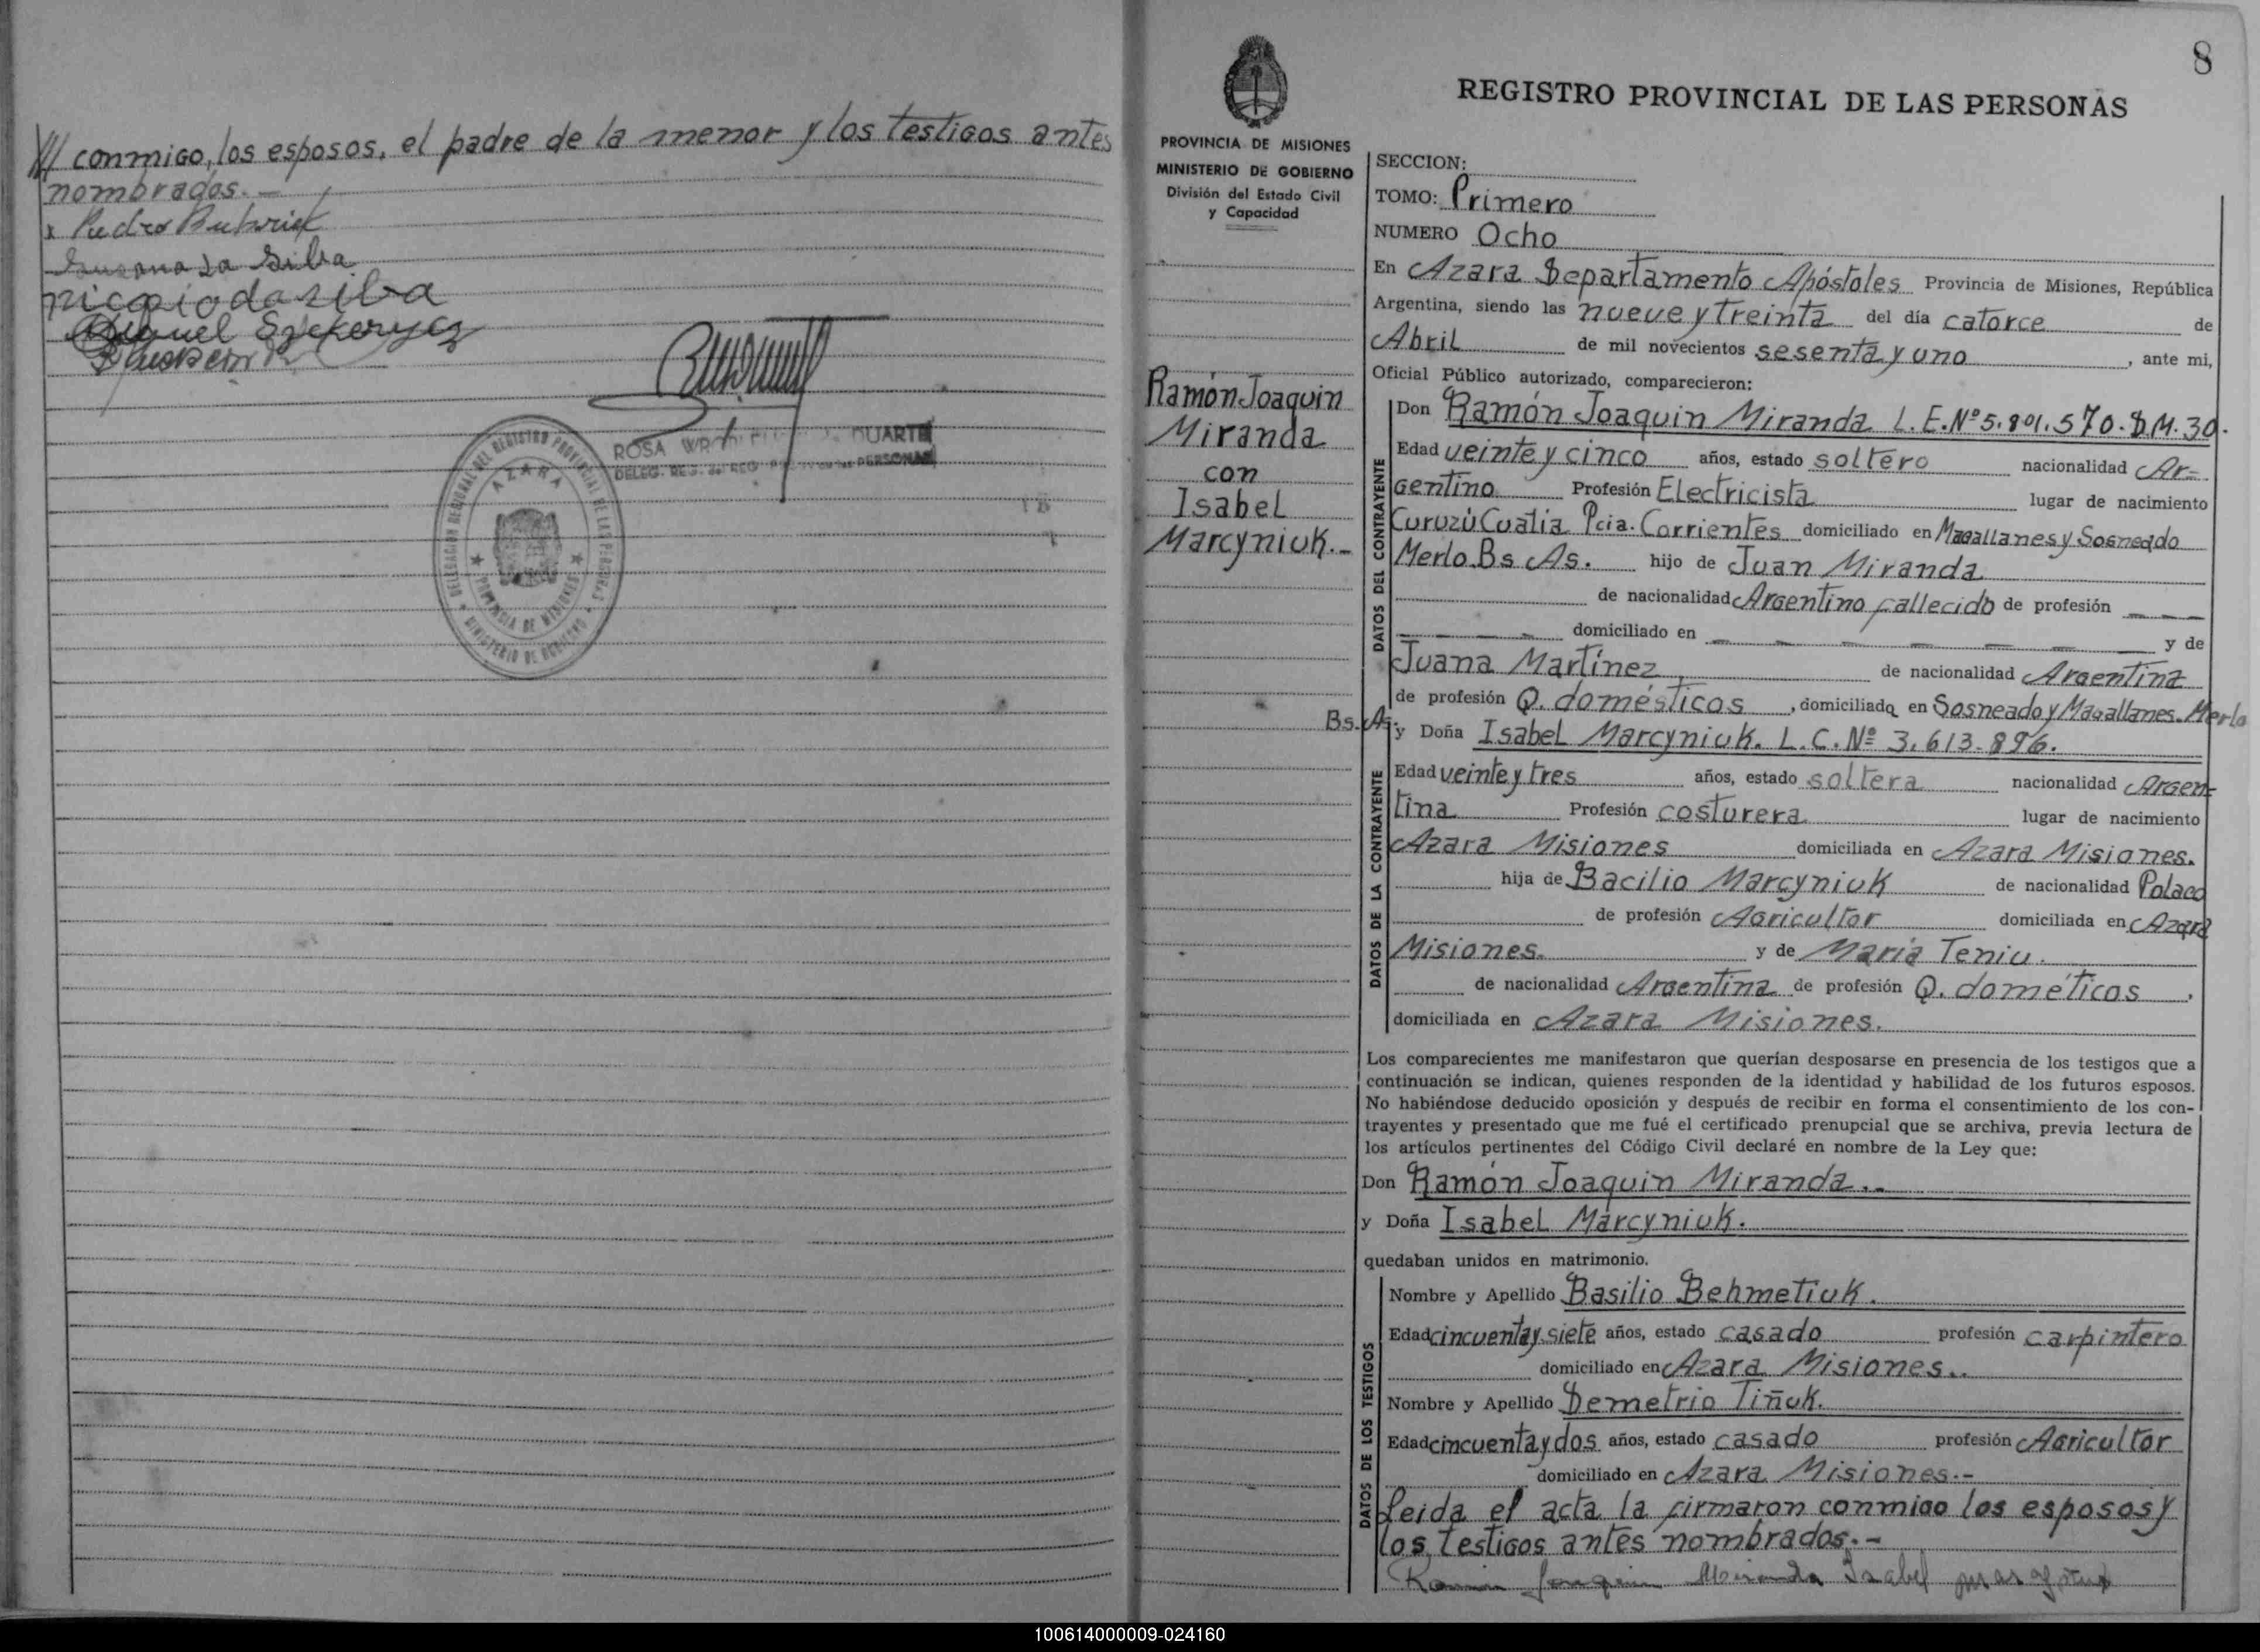 /// conmigo, los esposos, el padre de la menor y los testigos antes
nombrados.-
x Pedro
da Silva
da silva
Miguel
ROSA DUARTE
DELEG. REG. del REG. PERSONAS
DELEGACION REGIONAL DEL REGISTRO PROVINCIAL DE LAS PERSONAS
AZARA
PROVINCIA DE MISIONES
MINISTERIO DE GOBIERNO
8
REGISTRO PROVINCIAL DE LAS PERSONAS
PROVINCIA DE MISIONES
MINISTERIO DE GOBIERNO
División del Estado Civil
y Capacidad
Ramón Joaquin
Miranda
con
Isabel
Marcyniuk.-
SECCION:
TOMO: Primero
NUMERO Ocho
En Azara Departamento Apóstoles Provincia de Misiones, República
Argentina, siendo las nueve y treinta del día catorce de
Abril de mil novecientos sesenta y uno, ante mi,
Oficial Público autorizado, comparecieron:
DATOS DEL CONTRAYENTE
Don Ramón Joaquin Miranda L.E.Nº 5.801.570.D.M.30.
Edad veinte y cinco años, estado soltero nacionalidad Ar-
gentino Profesión Electricista lugar de nacimiento
Curuzú Cuatia Pcia. Corrientes domiciliado en Magallanes y Sosneado
Merlo. Bs As. hijo de Juan Miranda
de nacionalidad Argentino fallecido de profesión - - -
- - - domiciliado en - - - - - - y de
Juana Martínez de nacionalidad Argentina
de profesión Q. domésticos, domiciliada en Sosneado y Magallanes. Merlo
Bs. As. y Doña Isabel Marcyniuk. L.C. Nº 3.613.896.
DATOS DE LA CONTRAYENTE
Edad veinte y tres años, estado soltera nacionalidad Argen-
tina Profesión costurera lugar de nacimiento
Azara Misiones domiciliada en Azara Misiones.
hija de Bacilio Marcyniuk de nacionalidad Polaco
de profesión Agricultor domiciliada en Azara
Misiones. y de María Teniu.
de nacionalidad Argentina de profesión Q. dométicos,
domiciliada en Azara Misiones.
Los comparecientes me manifestaron que querían desposarse en presencia de los testigos que a
continuación se indican, quienes responden de la identidad y habilidad de los futuros esposos.
No habiéndose deducido oposición y después de recibir en forma el consentimiento de los con-
trayentes y presentado que me fué el certificado prenupcial que se archiva, previa lectura de
los artículos pertinentes del Código Civil declaré en nombre de la Ley que:
Don Ramón Joaquin Miranda.-
y Doña Isabel Marcyniuk.
quedaban unidos en matrimonio.
DATOS DE LOS TESTIGOS
Nombre y Apellido Basilio Behmetiuk.
Edad cincuenta y siete años, estado casado profesión carpintero
domiciliado en Azara Misiones..
Nombre y Apellido Demetrio Tiñuk.
Edad cincuenta y dos años, estado casado profesión Agricultor
domiciliado en Azara Misiones.-
Leida el acta la firmaron conmigo los esposos y
los testigos antes nombrados.-
Ramon Joaquin Miranda Isabel
100614000009-024160